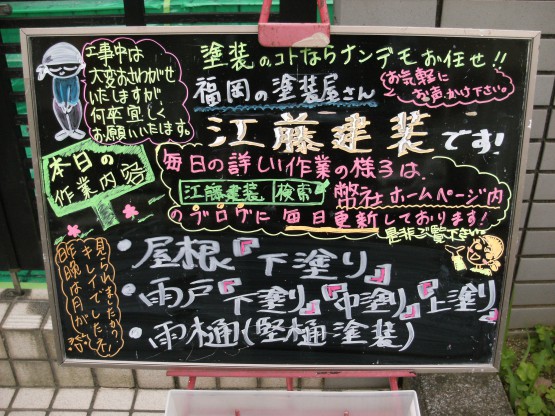 工事中は
大変おさわがせ
いたしますが
何卒宜しく
お願いいたします。
塗装のコトならナンデモお任せ!!
福岡の塗装屋さん
お気軽に
お声かけ下さい。
江藤建装です!
本日の
作業内容
毎日の詳しい作業の様子は、
江藤建装 検索 弊社ホームページ内
のブログに毎日更新しております!
是非ご覧下さい!!
・屋根『下塗り』
・雨戸『下塗り』『中塗り』『上塗り』
・雨樋(竪樋塗装)
昨晩は月が
キレイでしたネ
見られましたか?